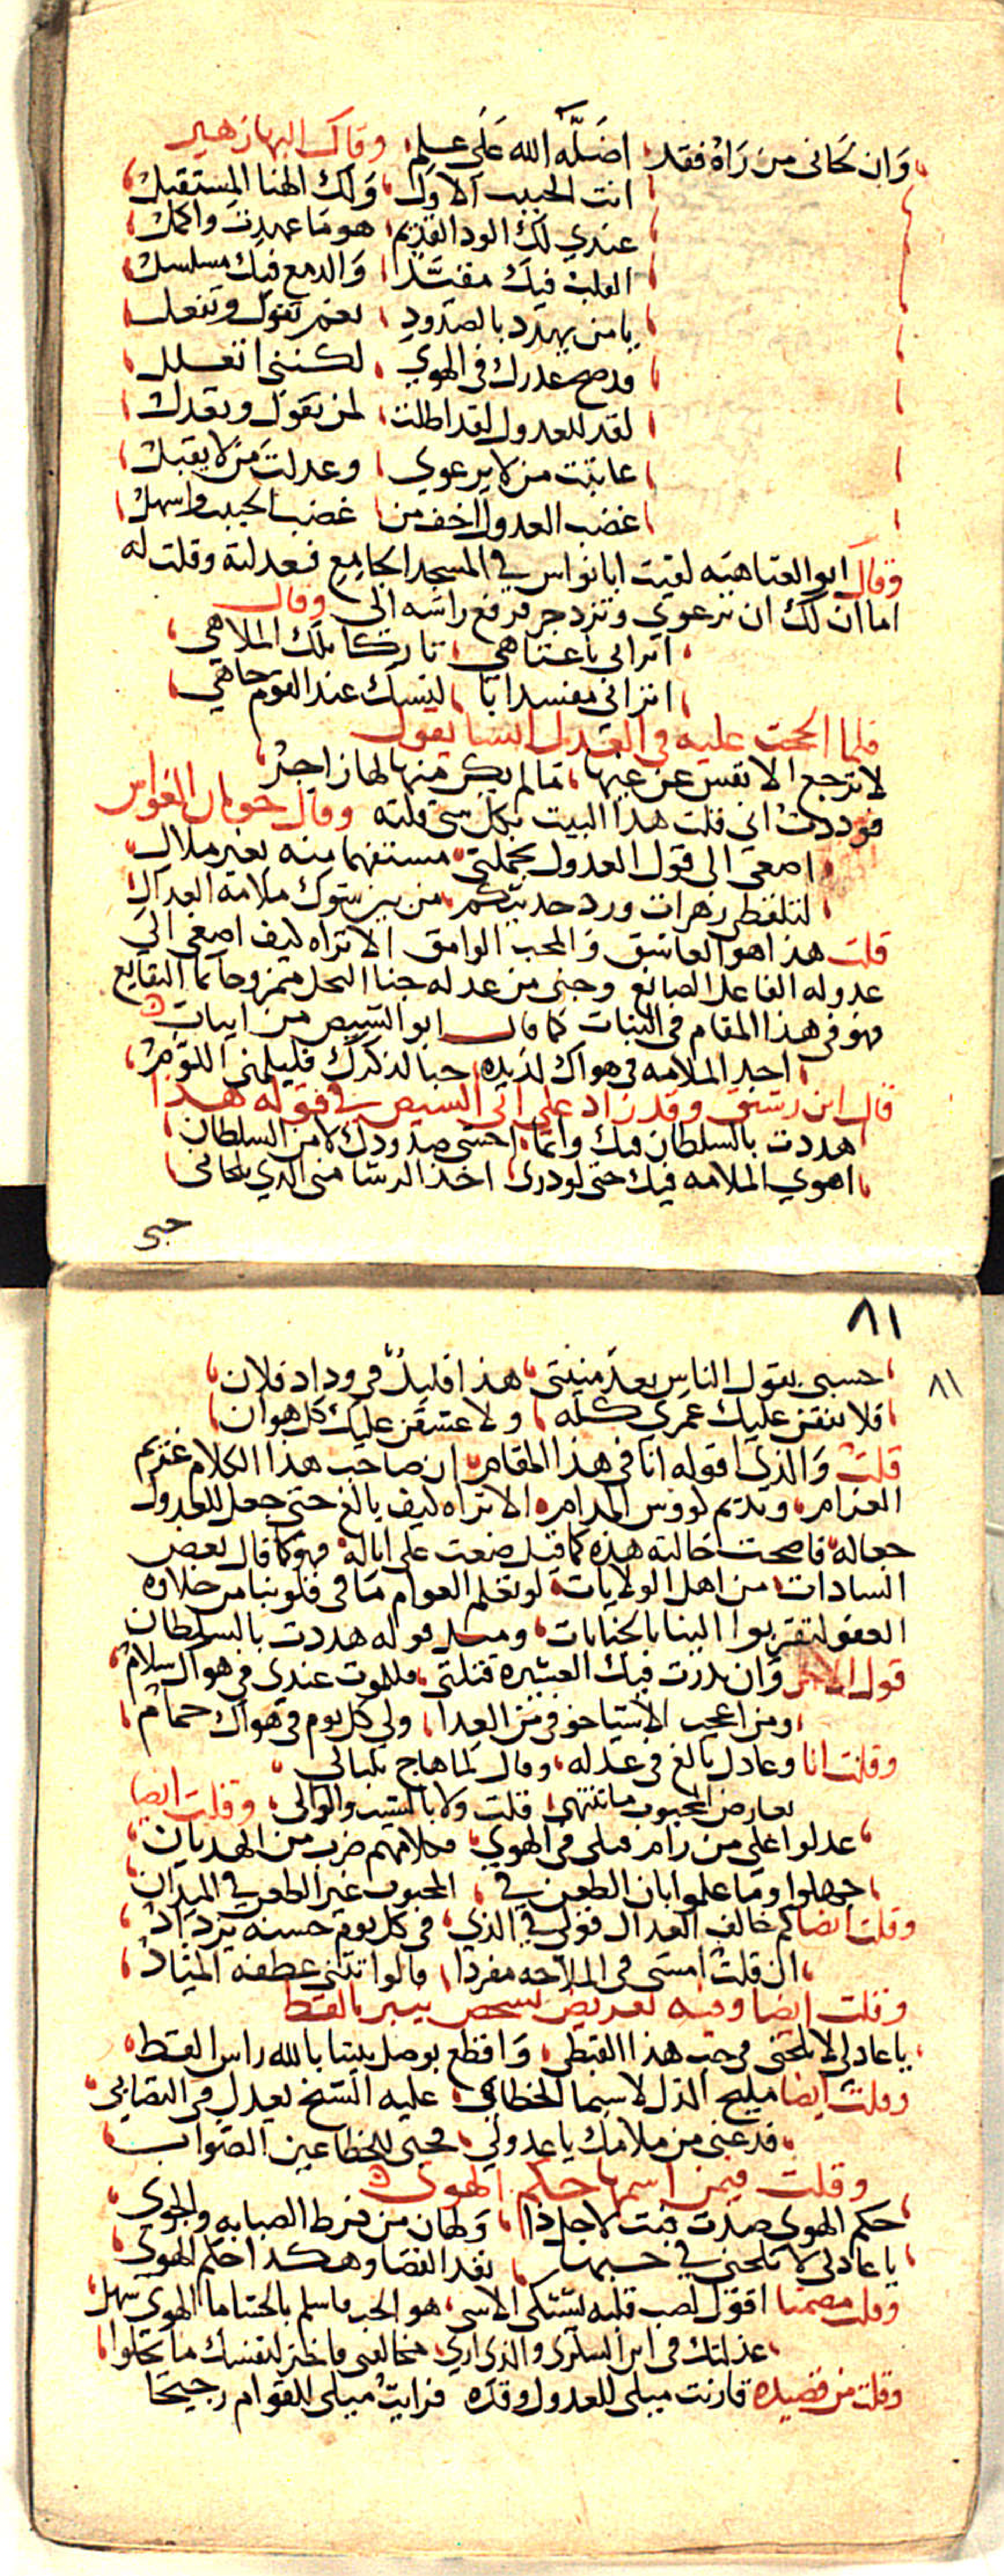 وان لحانى من رآه فقد اضله الله على علم وقال البها زهير
انت الحبيب الاول ولك الهنا المستقبل
عندي لك الود القديم هو ما عهدت واكمل
القلب فيك مقيد والدمع فيك مسلسل
يا من يهدد بالصدود نعم تقول وتفعل
قد صح عذرك في الهوي لكننى اتعلل
لقد للعدول لقد اطلت لمن تقول وتعدل
عاتبت من لا يرعوي وعدلت من لا يقبل
غضب العدول اخف من غضب الحبيب واسهل
وقال ابو العتاهيه لقيت ابا نواس في المسجد الجامع فعدلته وقلت له
اما ان لك ان ترعوي وتزدجر فرفع راسه الى وقال
اتراني يا عتاهي تاركا تلك الملاهي
اتراني مفسدا بالنسك عند القوم جاهي
فلما الححت عليه في العدل انشا يقول
لا ترجع الانفس عن غيها ما لم يكن منها لها زاجر
فوددت اني قلت هذا البيت بكل شي قلته وقال حوبان القواس
اصغى الى قول العدول بجملتى مستفهما عنه بغير ملال
لتلقطى زهرات ورد حديثكم من بين شوك ملامة العدال
قلت هذا هو العاشق والمحب الوامق الا تراه كيف اصغى الى
عدوله الفاعل الصانع وجنى من عدله جنا النحل ممزوجا بما النقايع
فهو في هذا المقام في الثبات كما قال ابو الشيص من ابيات
اجد الملامه في هواك لذيذه حبا لذكرك فليلمنى اللوم
قال ابن رشيق وقد زاد على ابى الشيص في قوله هذا
هددت بالسلطان فيك وانما اخشى صدودك لا من السلطان
اهوي الملامه فيك حتى لو درى اخذ الرشا منى الذي يلحانى
حبى
٨١
٨١
حسبى بقول الناس بعد منيتى هذا قتيل في وداد فلان
فلا نفقن عليك عمري كله ولا عشقن عليك كل هوان
قلت والذي اقوله انا في هذا المقام ان صاحب هذا الكلام غريم
الغرام ونديم كووس المدام الا تراه كيف بالغ حتى جعل للعدول
جعاله فاصبحت حالته هذه كما قيل ضغث على اباله فهو كما قال بعض
السادات من اهل الولايات لو تعلم العوام ما في قلوبنا من حلاوه
العفو لتقربوا الينا بالجنايات ومثل قوله هددت بالسلطان
قول الاخر وان نذرت فيك العشيرة قتلتى فللموت عندى في هواك سلام
ومن اعجب الاشيا خوفي من العدا ولي كل يوم في هواك حمام
وقلت انا وعادل بالغ في عدله وقال لما هاج بلبالى
بعارض المحبوب ما تنتهى قلت ولا بالشيب والوالى وقلت ايضا
عدلوا على من رام قتلى في الهوي فكلامهم ضرب من الهديان
جهلوا وما علموا بان الطعن في المحبوب غير الطعن في الميدان
وقلت ايضا كم خالف العدال قولى في الذي في كل يوم حسنه يزداد
ان قلت امسى في الملاحه مفردا قالوا تثنى عطفه المياد
وقلت ايضا وفيه تعريض بشخص يشير بالقط
يا عادلي لا تلحنى في حب هذا القبطى واقطع بوصل بيننا بالله راس القط
وقلت ايضا مليح الذل لا سيما الخطاى عليه الشيخ يعدل في التصابى
فدعنى من ملامك يا عدولي محبى للخطا عين الصواب
وقلت فيمن اسمها حكم الهوى
حكم الهوى صدت فبت لاجل ذا ولهان من فرط الصبابه والجوى
يا عادلى لا تلحنى في حبها نفد القضا وهكذا حكم الهوى
وقلت مضمنا اقول لصب قلبه يشتكى الاسى هو الحب فاسلم بالحشا ما الهوى سهل
عذلتك في ابن السكرى والذى ارى مخالفتى فاختر لنفسك ما يحلوا
وقلت من قصيده قارنت ميلى للعدول وقده فرايت ميلى للقوام رجيحا